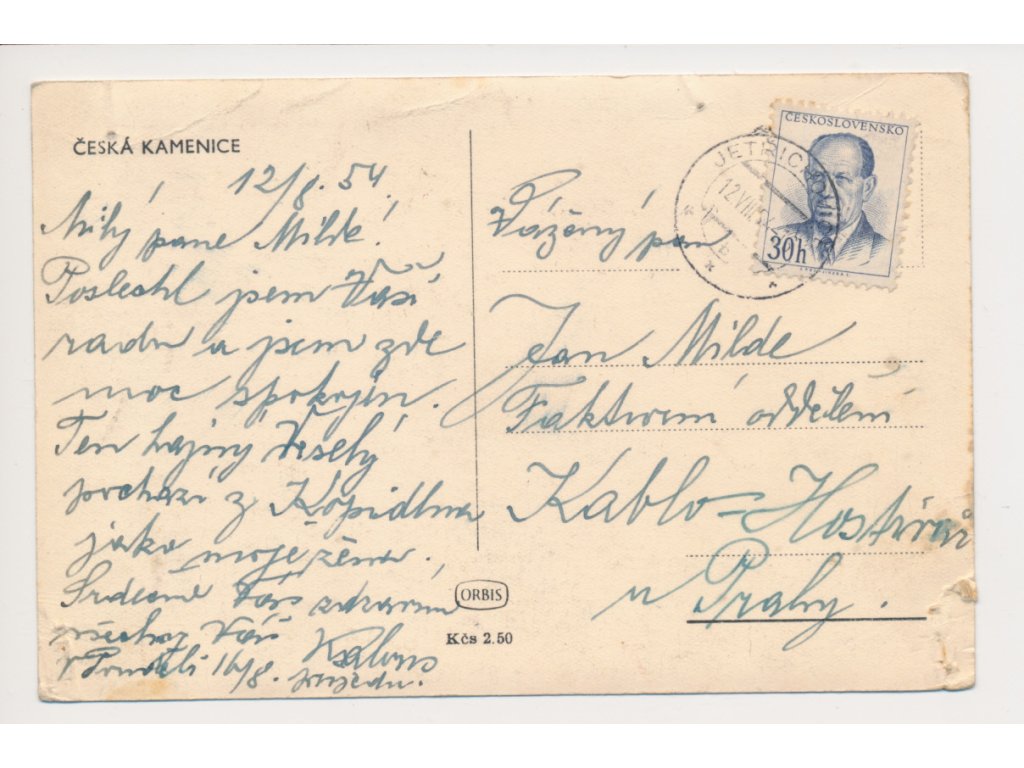 ČESKÁ KAMENICE
12/8. 54.
Milý pane Milde!
Poslechl jsem Vaší
radu a jsem zde
moc spokojen.
Ten hajný Veselý
pochází z Kopidlna
jako moje žena.
Srdečně Vás zdravím
všechny Váš
V pondělí 16/8. přijedu.
ORBIS
Kčs 2.50
ČESKOSLOVENSKO
30h
JETŘICHOVICE
12.VIII.
Vážený pan
Jan Milde
Fakturní oddělení
Kablo-Hostivař
u Prahy.